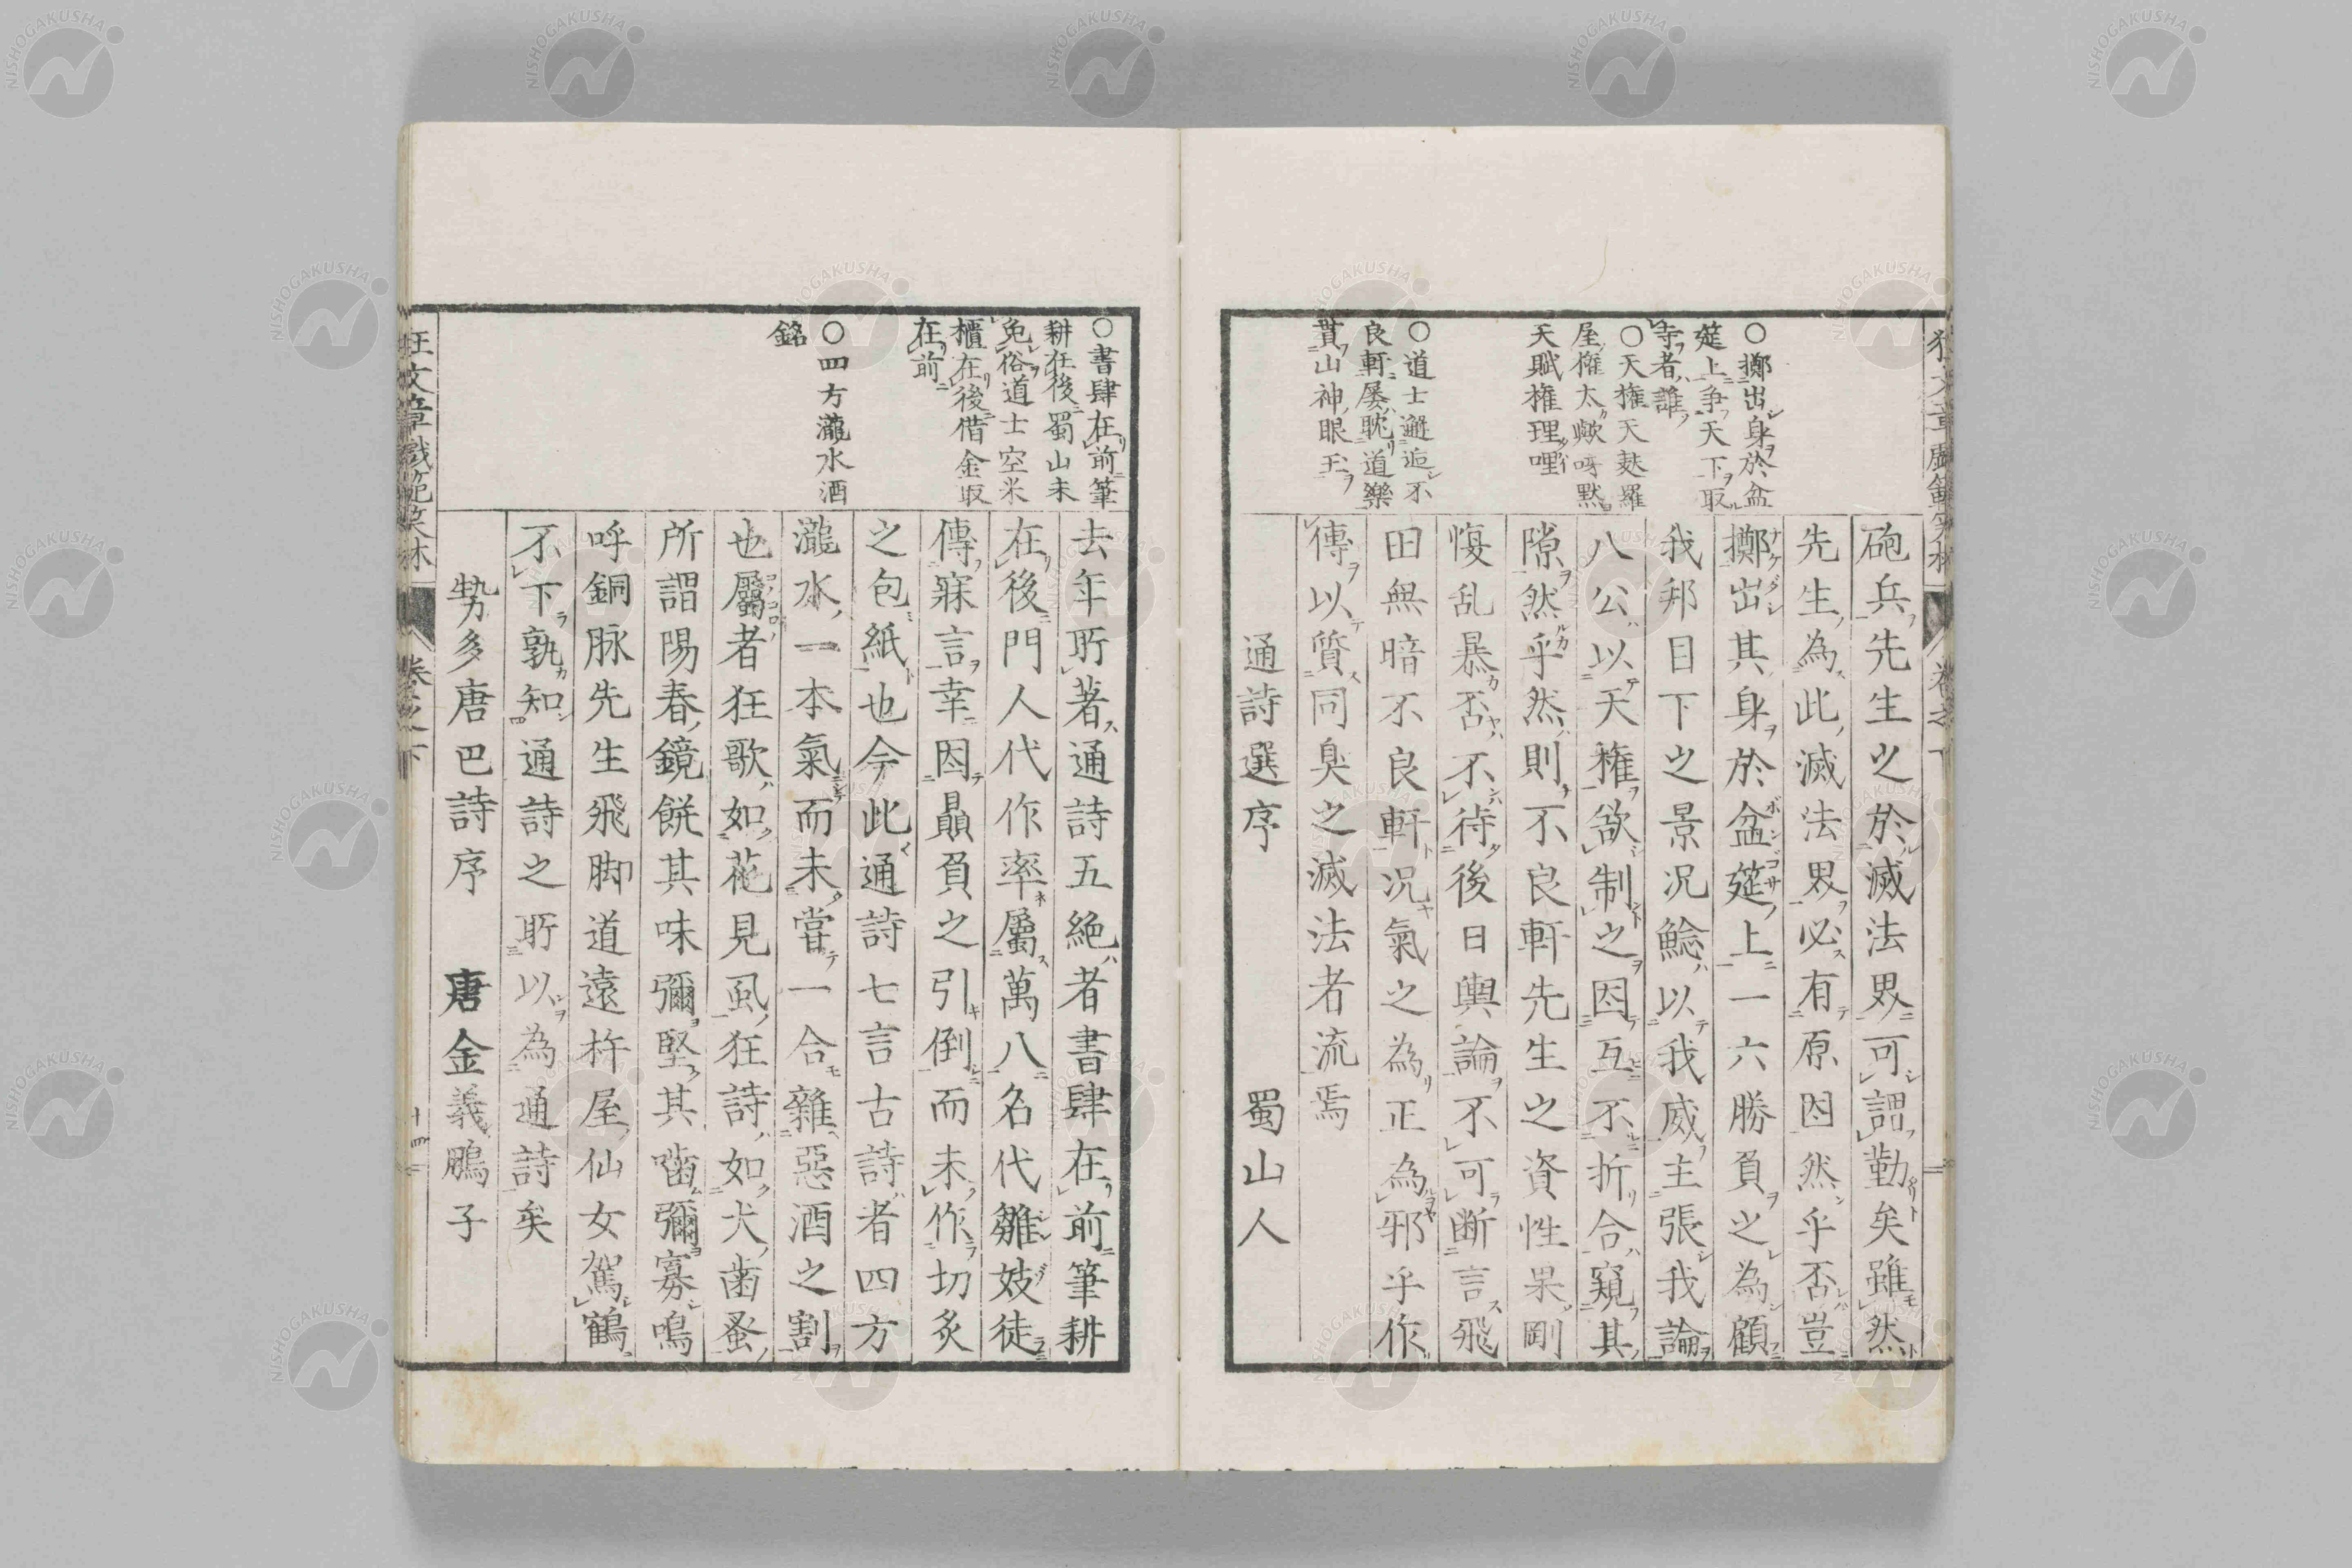 ○擲出身於盆
筵上争天下取
寺者誰
○天権天麩羅
屋権太歟呀黙
天賦権理哩
○道士邂逅不
良軒屡耽道樂
貫山神眼玉
砲兵先生之於滅法界可謂勤矣雖然
先生為此滅法界必有原因然乎否豈
擲出其身於盆筵上一六勝負之為顧
我邦目下之景况鯰以我威主張我論
八公以天権欲制之因互不折合窺其
隙然乎然則不良軒先生之資性果剛
愎乱暴否不待後日輿論不可断言飛
田無暗不良軒况氣之為正為邪乎作
傳以質同臭之滅法者流焉
通詩選序 蜀山人
○書肆在前筆
耕在後蜀山未
免俗道士空米
櫃在後借金取
在前
○四方瀧水酒
銘
去年所著通詩五絶者書肆在前筆耕
在後門人代作率屬萬八名代雛妓徒
傳寐言幸因贔負之引倒而未作切炙
之包紙也今此通詩七言古詩者四方
瀧水一本氣而未嘗一合雜惡酒之割
也屬者狂歌如花見虱狂詩如犬歯蚤
所謂陽春鏡餅其味彌堅其噛彌寡鳴
呼銅脉先生飛脚道遠杵屋仙女駕鶴
不下孰知通詩之所以為通詩矣
㔟多唐巴詩序 唐金義鵬子
狂文章戯範笑林 卷之下 十四